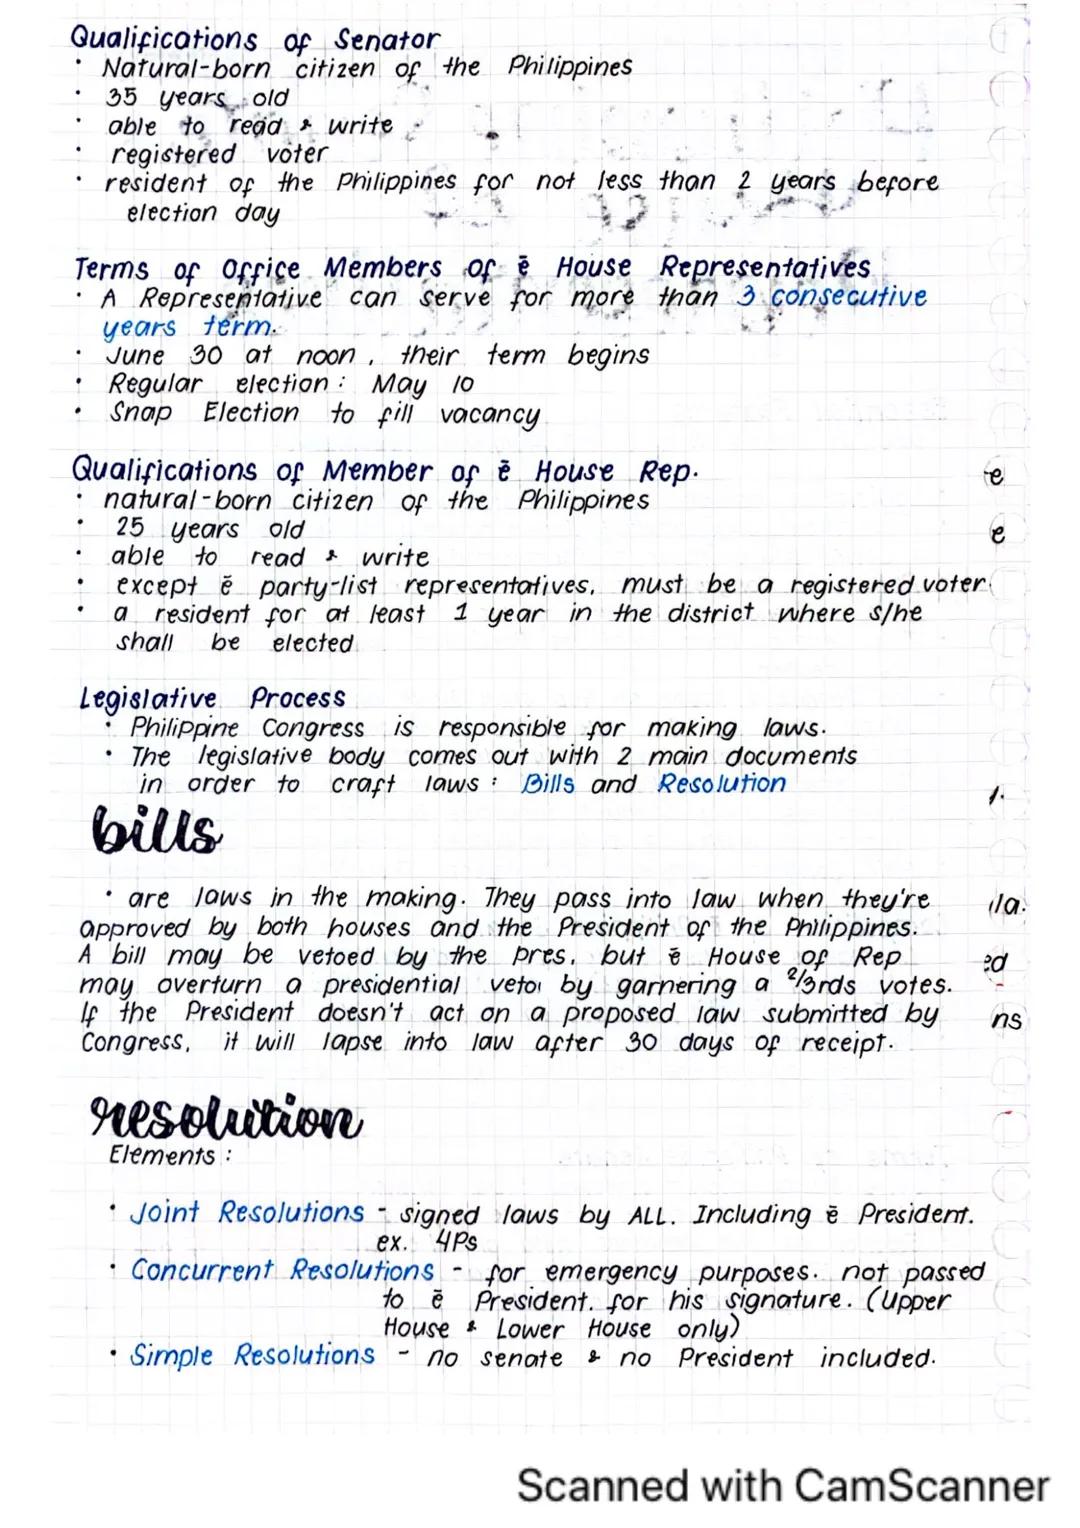 Qualifications of Senator
• Natural-born citizen of the Philippines
• 35 years old
• able to read & write
• registered voter
• resident of the Philippines for not less than 2 years before
election day
Terms of Office Members of ē House Representatives
• A Representative can serve for more than 3 consecutive
years term.
• June 30 at noon, their term begins
• Regular election: May 10
• Snap Election to fill vacancy
Qualifications of Member of ē House Rep.
• natural-born citizen of the Philippines
• 25 years old
• able to read & write
• except ē party-list representatives, must be a registered voter
• a resident for at least 1 year in the district where s/he
shall be elected
Legislative Process
• Philippine Congress is responsible for making laws.
• The legislative body comes out with 2 main documents
in order to craft laws: Bills and Resolution
bills
• are laws in the making. They pass into law when they're
approved by both houses and the President of the Philippines.
A bill may be vetoed by the pres, but ē House of Rep
may overturn a presidential veto by garnering a 2/3rds votes.
If the President doesn't act on a proposed law submitted by
Congress, it will lapse into law after 30 days of receipt.
resolution
Elements:
• Joint Resolutions - signed laws by ALL. Including ē President.
ex. 4Ps
• Concurrent Resolutions - for emergency purposes. not passed
to ē President. for his signature. (Upper
House & Lower House only)
• Simple Resolutions - no senate & no President included.
Scanned with CamScanner